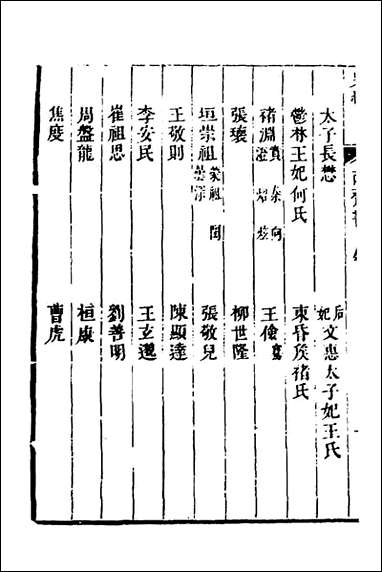 南齊書
太子長懋 后妃文惠太子妃王氏
鬱林王妃何氏 東昏侯褚氏
褚淵 賁 蓁 向 澄 炤 炫 王儉
張瓌 柳世隆
垣崇祖 榮祖 閎 曇深 張敬兒
王敬則 陳顯達
李安民 王玄邈
崔祖思 劉善明
周盤龍 桓康
焦度 曹虎